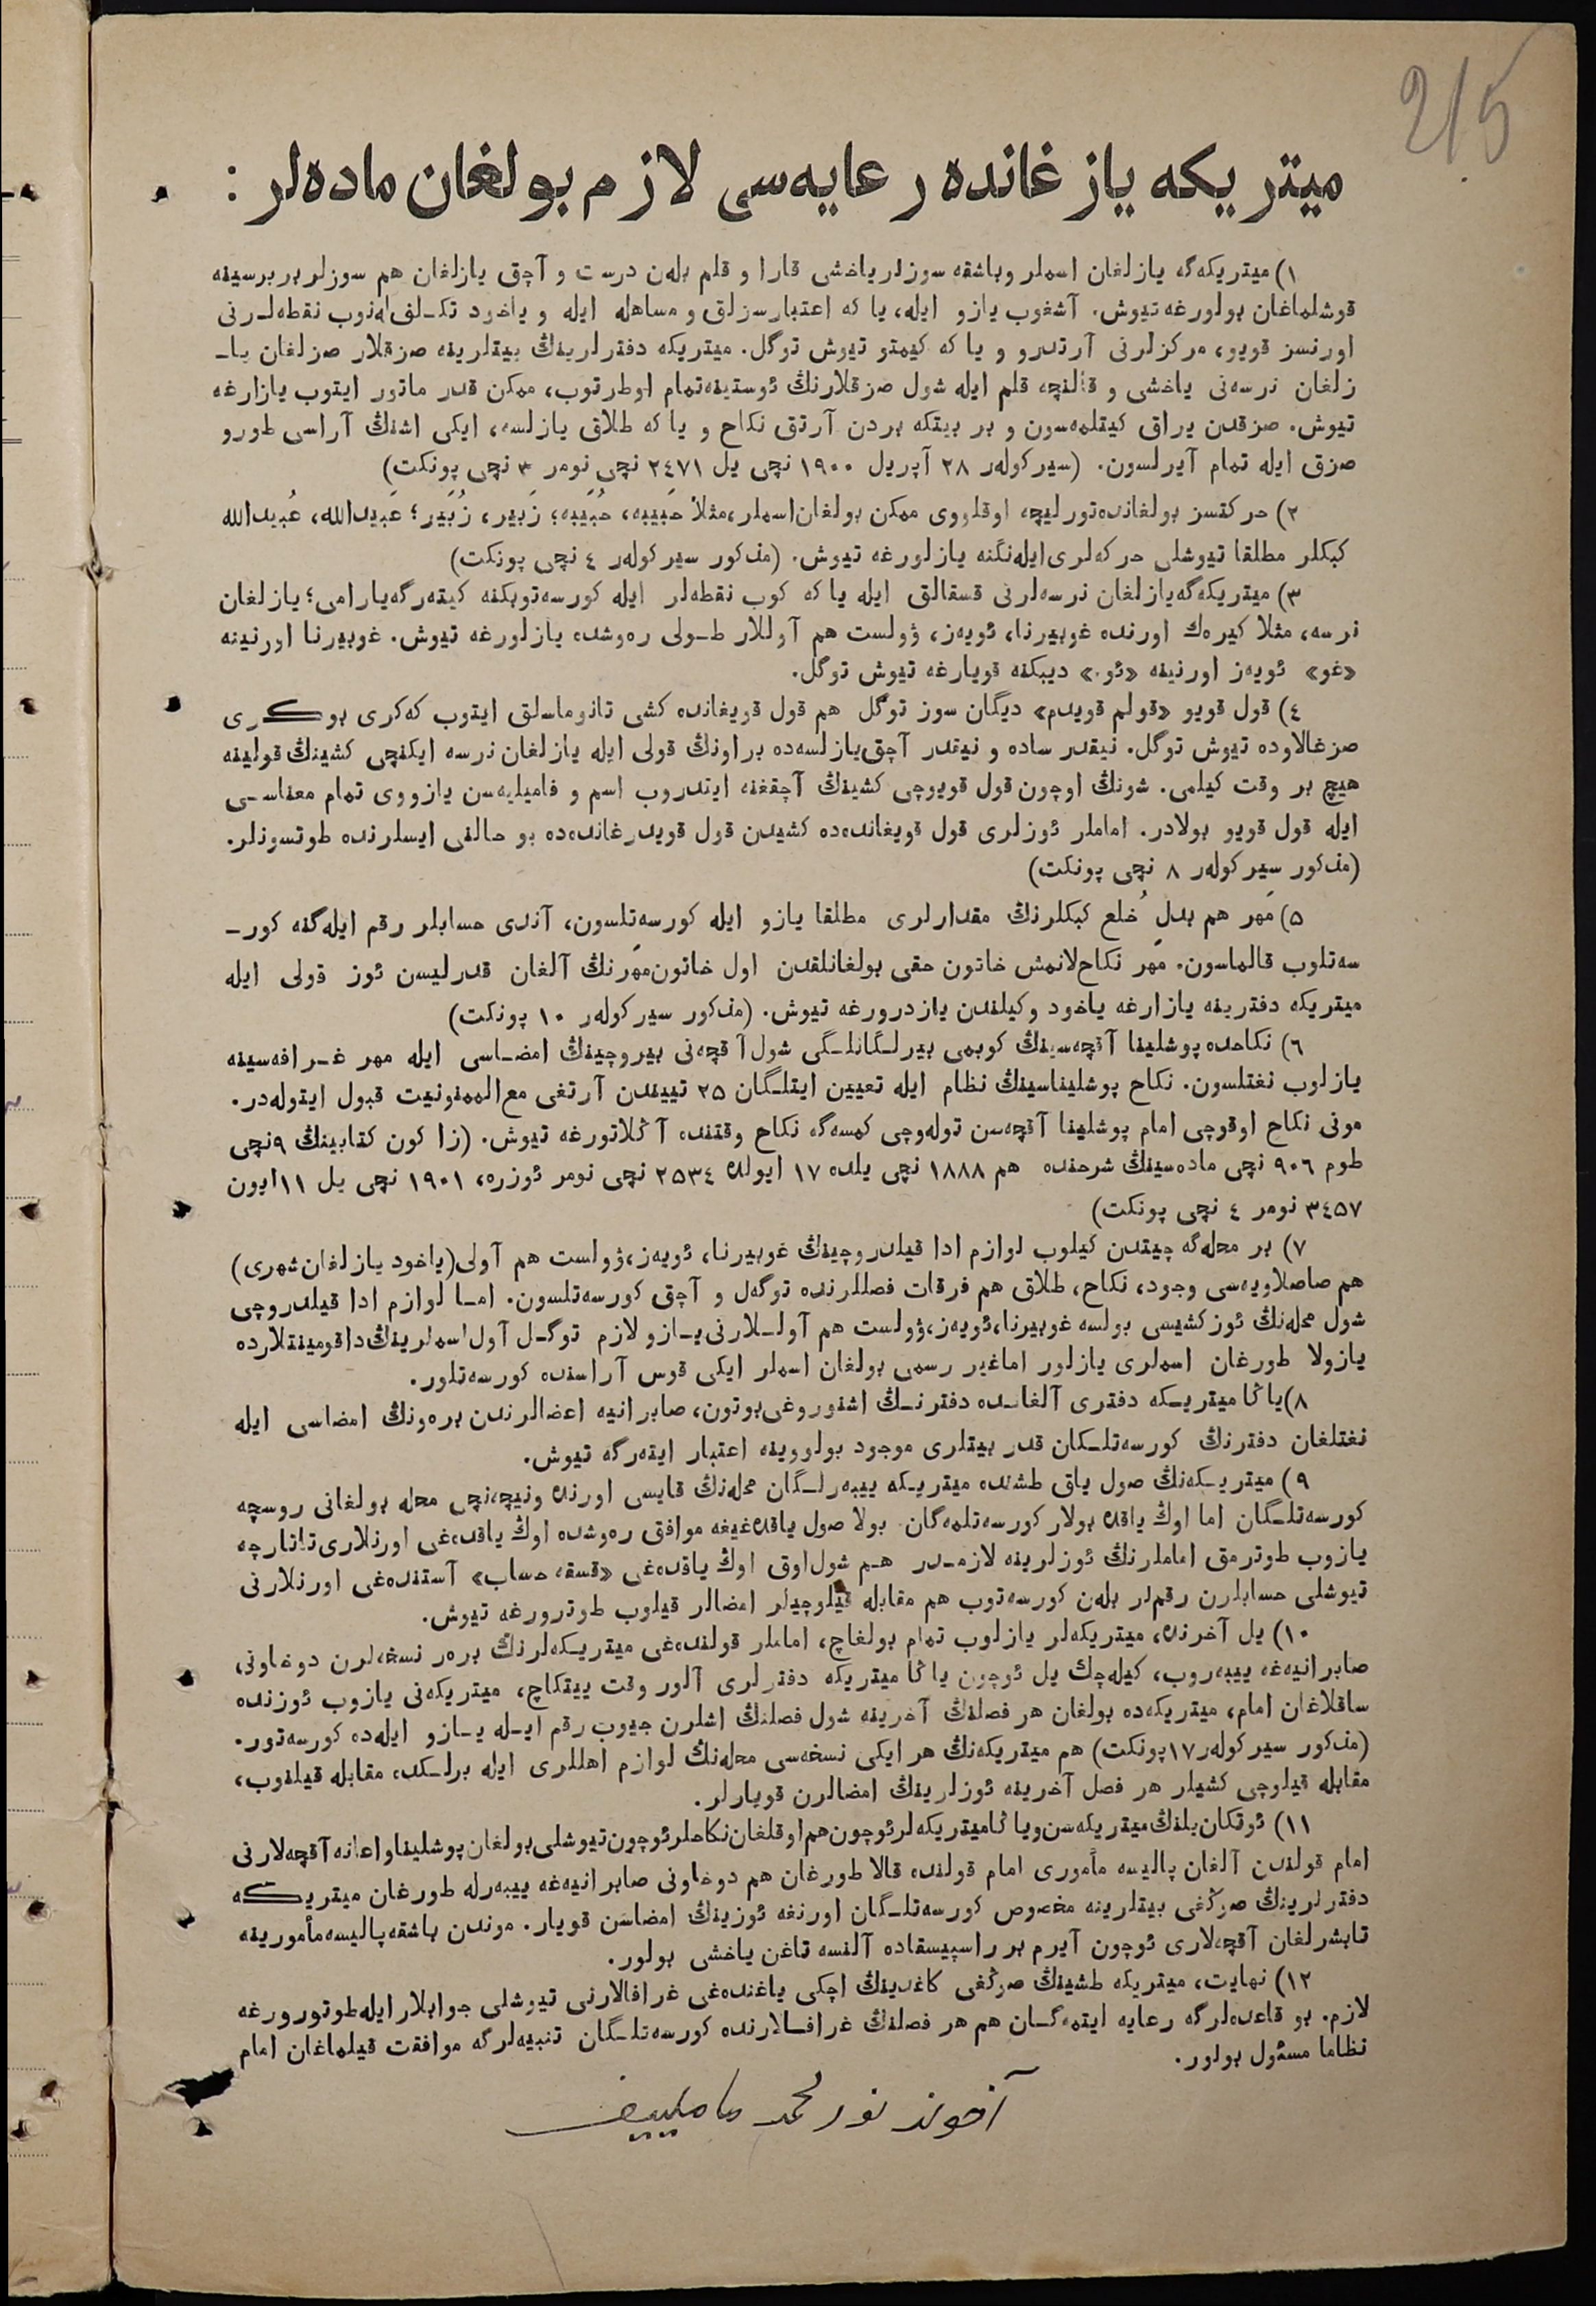 215
ميتريكه يازغانده رعايه‌سى لازم بولغان ماده‌لر :
١) ميتريكه‌گه يازلغان اسملر وباشقه سوزلر ياخشى قارا و قلم بله‌ن درست و آچق يازلغان هم سوزلر بر برسينه
قوشلماغان بولورغه تيوش. آشغوب يازو ايله، يا كه اعتبارسزلق و مساهله ايله و ياخود تكـلف له‌نوب نقطه‌لـرنى
اورنسز قويو، مركزلرنى آرتدرو و يا كه كيمتو تيوش توگل. ميتريكه دفترلرينڭ بيتلرينه صزقلار صزلغان يا‐
زلغان نرسه‌نى ياخشى و قالنچه قلم ايله شول صزقلارنڭ ئوستينه تمام اوطرتوب، ممكن قدر ماتور ايتوب يازارغه
تيوش. صزقدن يراق كيتلمه‌سون و بر بيتكه بردن آرتق نكاح و يا كه طلاق يازلسه، ايكى اشنڭ آراسى طورو
صزق ايله تمام آيرلسون. (سيركولەر ٢٨ آپريل ١٩٠٠ نچى يل ٢٤٧١ نچى نومر ٣ نچى پونكت)
٢) حركتسز بولغانده تورليچه اوقلووى ممكن بولغان اسملر، مثلا حَبيبه، حُبَيبه؛ زَبير، زُبَير؛ عَبيدالله، عُبيدالله
كبكلر مطلقا تيوشلى حركه‌لرى ايله‌نگنه يازلورغه تيوش. (مذكور سيركولەر ٤ نچى پونكت)
٣) ميتريكه‌گه يازلغان نرسه‌لرنى قسقالق ايله يا كه كوب نقطه‌لر ايله كورسه‌توبكنه كيته‌رگه يارامى؛ يازلغان
نرسه، مثلا كيره‌ك اورنده غوبيرنا، ئويه‌ز، ۋولست هم آوللار طـولى ره‌وشده يازلورغه تيوش. غوبيرنا اورنينه
«غو» ئويه‌ز اورنينه «ئو.» ديبكنه قويارغه تيوش توگل.
٤) قول قويو «قولم قويدم» ديگان سوز توگل هم قول قويغانده كشى تانوماسلق ايتوب كه‌كرى بوكـرى
صزغالاوده تيوش توگل. نيقدر ساده و نيقدر آچق يازلسه‌ده براونڭ قولى ايله يازلغان نرسه ايكنچى كشينڭ قولينه
هيچ بر وقت كيلمى. شونڭ اوچون قول قويوچى كشينڭ آچقغنه ايتدروب اسم و فاميليه‌سن يازووى تمام معناسـى
ايله قول قويو بولادر. اماملر ئوزلرى قول قويغانده‌ده كشيدن قول قويدرغانده‌ده بو حالنى ايسلرنده طوتسونلر.
(مذكور سيركولەر ٨ نچى پونكت)
٥) مَهر هم بدلِ خُلع كبكلرنڭ مقدارلرى مطلقا يازو ايله كورسه‌تلسون، آندى حسابلر رقم ايله‌گنه كور‐
سه‌تلوب قالماسون. مَهر نكاح‌لانمش خاتون حقى بولغانلقدن اول خاتون مَهرنڭ آلغان قدرليسن ئوز قولى ايله
ميتريكه دفترينه يازارغه ياخود وكيلندن يازدرورغه تيوش. (مذكور سيركولەر ١٠ پونكت)
٦) نكاحده پوشلينا آقچه‌سينڭ كوبمى بيرلـگانلـگى شول آقچه‌نى بيروچينڭ امضـاسى ايله مهر غـرافه‌سينه
يازلوب نغتلسون. نكاح پوشليناسينڭ نظام ايله تعيين ايتلـگان ٢٥ تييندن آرتغى مع الممنونيت قبول ايتوله‌در.
مونى نكاح اوقوچى امام پوشلينا آقچه‌سن توله‌وچى كمسه‌گه نكاح وقتنده آڭلاتورغه تيوش. (زاكون كتابينڭ ٩نچى
طوم ٩٠٦ نچى ماده‌سينڭ شرحنده هم ١٨٨٨ نچى يلده ١٧ ايولده ٢٥٣٤ نچى نومر ئوزره، ١٩٠١ نچى يل ١١ايون
٣٤٥٧ نومر ٤ نچى پونكت)
٧) بر محله‌گه چيتدن كيلوب لوازم ادا قيلدروچينڭ غوبيرنا، ئويه‌ز، ۋولست هم آولى (ياخود يازلغان شهرى)
هم صاصلاويه‌سى وجود، نكاح، طلاق هم فرقات فصللرنده توگه‌ل و آچق كورسه‌تلسون. امـا لوازم ادا قيلدروچى
شول محله‌نڭ ئوز كشيسى بولسه غوبيرنا، ئويه‌ز، ۋولست هم آولـلارنى يـازو لازم توگـل آول اسملرينڭ داقومينتلارده
يازولا طورغان اسملرى يازلور اماغير رسمى بولغان اسملر ايكى قوس آراسنده كورسه‌تلور.
٨) ياڭا ميتريـكه دفترى آلغانـده دفترنـڭ اشنوروغى بوتون، صابرانيه اعضالرندن بره‌ونڭ امضاسى ايله
نغتلغان دفترنڭ كورسه‌تلـكان قدر بيتلرى موجود بولووينه اعتبار ايته‌رگه تيوش.
٩) ميتريـكه‌نڭ صول ياق طشنده ميتريـكه ييبه‌رلـگان محله‌نڭ قايسى اورنده ونيچه‌نچى محله بولغانى روسچه
كورسه‌تلـگان اما اوڭ ياقده بولار كورسه‌تلمه‌گان. بولا صول ياقده‌غيغه موافق ره‌وشده اوڭ ياقده‌غى اورنلارى تاتارچه
يازوب طوترمق اماملرنڭ ئوزلرينه لازمـدر هـم شول‌اوق اوڭ ياقده‌غى «قسقه حساب» آستنده‌غى اورنلارنى
تيوشلى حسابلرن رقملر بله‌ن كورسه‌توب هم مقابله قيلوچيلر امضالر قيلوب طوترورغه تيوش.
١٠) يل آخرنده، ميتريكه‌لر يازلوب تمام بولغاچ، اماملر قولنده‌غى ميتريـكه‌لرنڭ بره‌ر نسخه‌لرن دوخاونى
صابرانيه‌غه ييبه‌روب، كيله‌چك يل ئوچون ياڭا ميتريكه دفترلرى آلور وقت ييتكاچ، ميتريكه‌نى يازوب ئوزنده
ساقلاغان امام، ميتريكه‌ده بولغان هر فصلنڭ آخرينه شول فصلنڭ اشلرن جيوب رقم ايـله يـازو ايله‌ده كورسه‌تور.
(مذكور سيركولەر ١٧پونكت) هم ميتريكه‌نڭ هر ايكى نسخه‌سى محله‌نڭ لوازم اهللرى ايله برلـكده مقابله قيلنوب،
مقابله قيلوچى كشيلر هر فصل آخرينه ئوزلرينڭ امضالرن قويارلر.
١١) ئوتكان يلنڭ ميتريكه‌سن وياڭا ميتريكه‌لر ئوچون هم اوقلغان نكاحلر ئوچون تيوشلى بولغان پوشلينا و اعانه آقچه‌لارنى
امام قولندن آلغان پاليسه مأمورى امام قولنده قالا طورغان هم دوخاونى صابرانيه‌غه ييبه‌رله طورغان ميتريـكه
دفترلرينڭ صوڭغى بيتلرينه مخصوص كورسه‌تلـگان اورنغه ئوزينڭ امضاسن قويار. موندن باشقه پاليسه مأمورينه
تابشرلغان آقچه‌لارى ئوچون آيرم بر راسپيسقاده آلنسه تاغن ياخشى بولور.
١٢) نهايت، ميتريكه طشينڭ صوڭغى كاغدينڭ اچكى ياغنده‌غى غرافالارنى تيوشلى جوابلار ايله طوتورورغه
لازم. بو قاعده‌لرگه رعايه ايتمه‌گـان هم هر فصلنڭ غرافـالارنده كورسه‌تلـگان تنبيه‌لرگه موافقت قيلماغان امام
نظاما مسئول بولور.
آخوند نورمحمد ماملييف